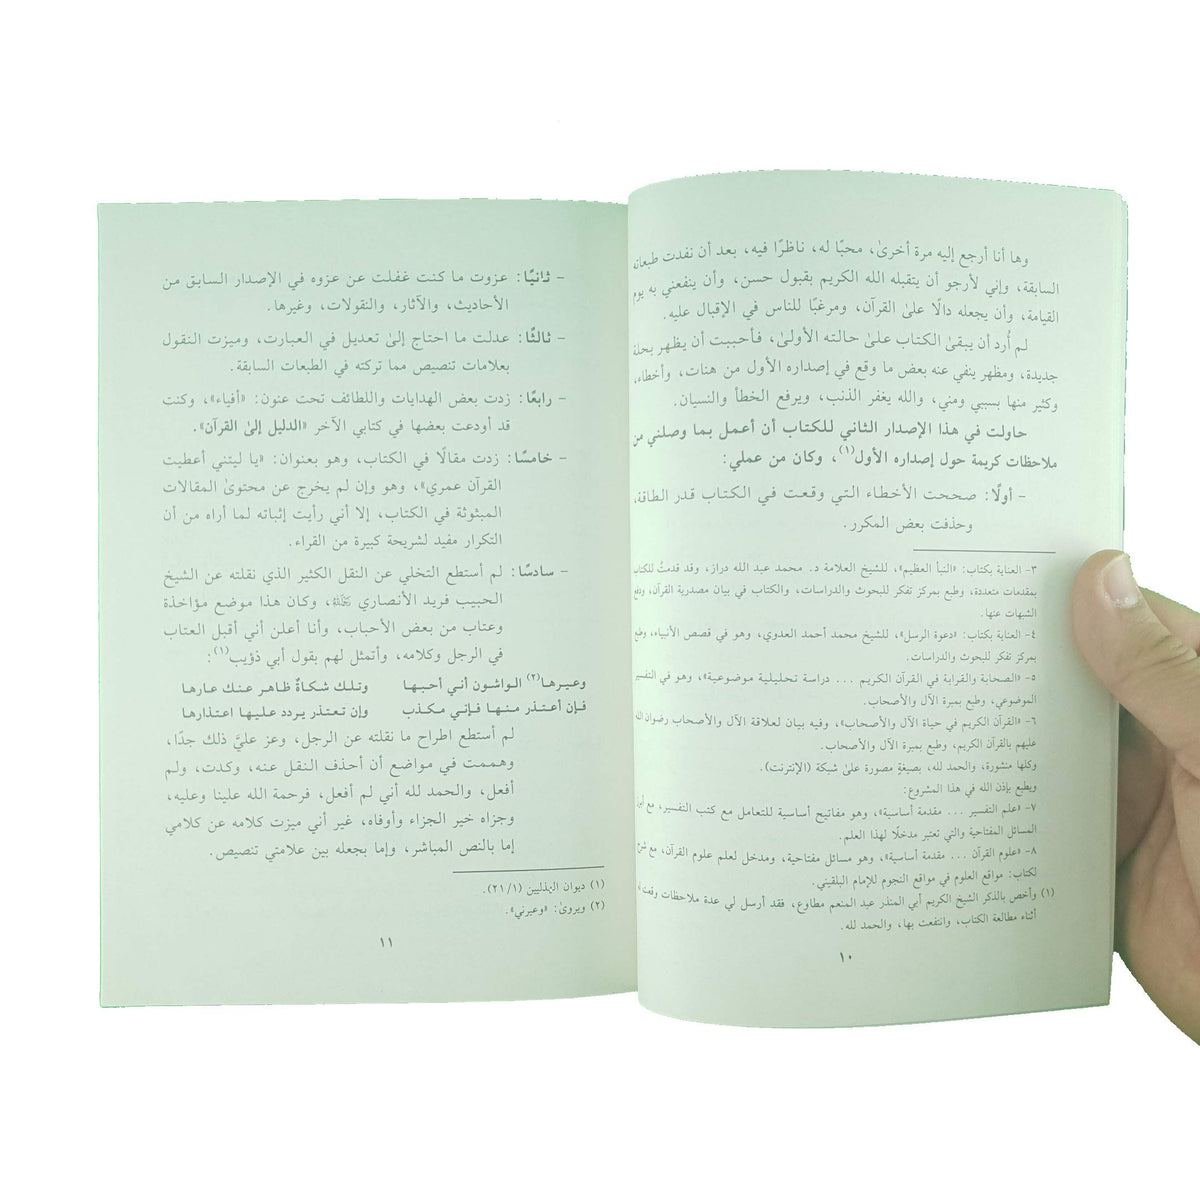 وها أنا أرجع إليه مرة أخرىٰ، محبًا له، ناظرًا فيه، بعد أن نفدت طبعاته
السابقة، وإني لأرجو أن يتقبله الله الكريم بقبول حسن، وأن ينفعني به يوم
القيامة، وأن يجعله دالًا علىٰ القرآن، ومرغبًا للناس في الإقبال عليه.
لم أُرد أن يبقىٰ الكتاب علىٰ حالته الأولىٰ، فأحببت أن يظهر بحلة
جديدة، ومظهر ينفي عنه بعض ما وقع في إصداره الأول من هنات، وأخطاء،
وكثير منها بسببي ومني، والله يغفر الذنب، ويرفع الخطأ والنسيان.
حاولت في هذا الإصدار الثاني للكتاب أن أعمل بما وصلني من
ملاحظات كريمة حول إصداره الأول(١)، وكان من عملي:
- أولًا: صححت الأخطاء التي وقعت في الكتاب قدر الطاقة،
وحذفت بعض المكرر.
٣- العناية بكتاب: «النبأ العظيم»، للشيخ العلامة د. محمد عبد الله دراز، وقد قدمتُ للكتاب
بمقدمات متعددة، وطبع بمركز تفكر للبحوث والدراسات، والكتاب في بيان مصدرية القرآن، ودفع
الشبهات عنها.
٤- العناية بكتاب: «دعوة الرسل»، للشيخ محمد أحمد العدوي، وهو في قصص الأنبياء، وطبع
بمركز تفكر للبحوث والدراسات.
٥- «الصحابة والقرابة في القرآن الكريم ... دراسة تحليلية موضوعية»، وهو في التفسير
الموضوعي، وطبع بمبرة الآل والأصحاب.
٦- «القرآن الكريم في حياة الآل والأصحاب»، وفيه بيان لعلاقة الآل والأصحاب رضوان الله
عليهم بالقرآن الكريم، وطبع بمبرة الآل والأصحاب.
وكلها منشورة، والحمد لله، بصيغةٍ مصورة علىٰ شبكة (الإنترنت).
ويطبع بإذن الله في هذا المشروع:
٧- «علم التفسير ... مقدمة أساسية»، وهو مفاتيح أساسية للتعامل مع كتب التفسير، مع أبرز
المسائل المفتاحية والتي تعتبر مدخلًا لهذا العلم.
٨- «علوم القرآن ... مقدمة أساسية»، وهو مسائل مفتاحية، ومدخل لعلم علوم القرآن، مع شرح
لكتاب: مواقع العلوم في مواقع النجوم للإمام البلقيني.
(١) وأخص بالذكر الشيخ الكريم أبي المنذر عبد المنعم مطاوع، فقد أرسل لي عدة ملاحظات وقعت له
أثناء مطالعة الكتاب، وانتفعت بها، والحمد لله.
١٠
- ثانيًا: عزوت ما كنت غفلت عن عزوه في الإصدار السابق من
الأحاديث، والآثار، والنقولات، وغيرها.
- ثالثًا: عدلت ما احتاج إلىٰ تعديل في العبارت، وميزت النقول
بعلامات تنصيص مما تركته في الطبعات السابقة.
- رابعًا: زدت بعض الهدايات واللطائف تحت عنون: «أفياء»، وكنت
قد أودعت بعضها في كتابي الآخر «الدليل إلىٰ القرآن».
- خامسًا: زدت مقالًا في الكتاب، وهو بعنوان: «يا ليتني أعطيت
القرآن عمري»، وهو وإن لم يخرج عن محتوىٰ المقالات
المبثوثة في الكتاب، إلا أني رأيت إثباته لما أراه من أن
التكرار مفيد لشريحة كبيرة من القراء.
- سادسًا: لم أستطع التخلي عن النقل الكثير الذي نقلته عن الشيخ
الحبيب فريد الأنصاري رحمه الله، وكان هذا موضع مؤاخذة
وعتاب من بعض الأحباب، وأنا أعلن أني أقبل العتاب
في الرجل وكلامه، وأتمثل لهم بقول أبي ذؤيب(١):
وعيرها(٢) الواشون أني أحبها وتلك شكاةٌ ظاهر عنك عارها
فإن أعتذر منها فإني مكذب وإن تعتذر يردد عليها اعتذارها
لم أستطع اطراح ما نقلته عن الرجل، وعز عليَّ ذلك جدًا،
وهممت في مواضع أن أحذف النقل عنه، وكدت، ولم
أفعل، والحمد لله أني لم أفعل، فرحمة الله علينا وعليه،
وجزاه خير الجزاء وأوفاه، غير أني ميزت كلامه عن كلامي
إما بالنص المباشر، وإما بجعله بين علامتي تنصيص.
(١) ديوان الهذليين (٢١/١).
(٢) ويروىٰ: «وعيرني».
١١